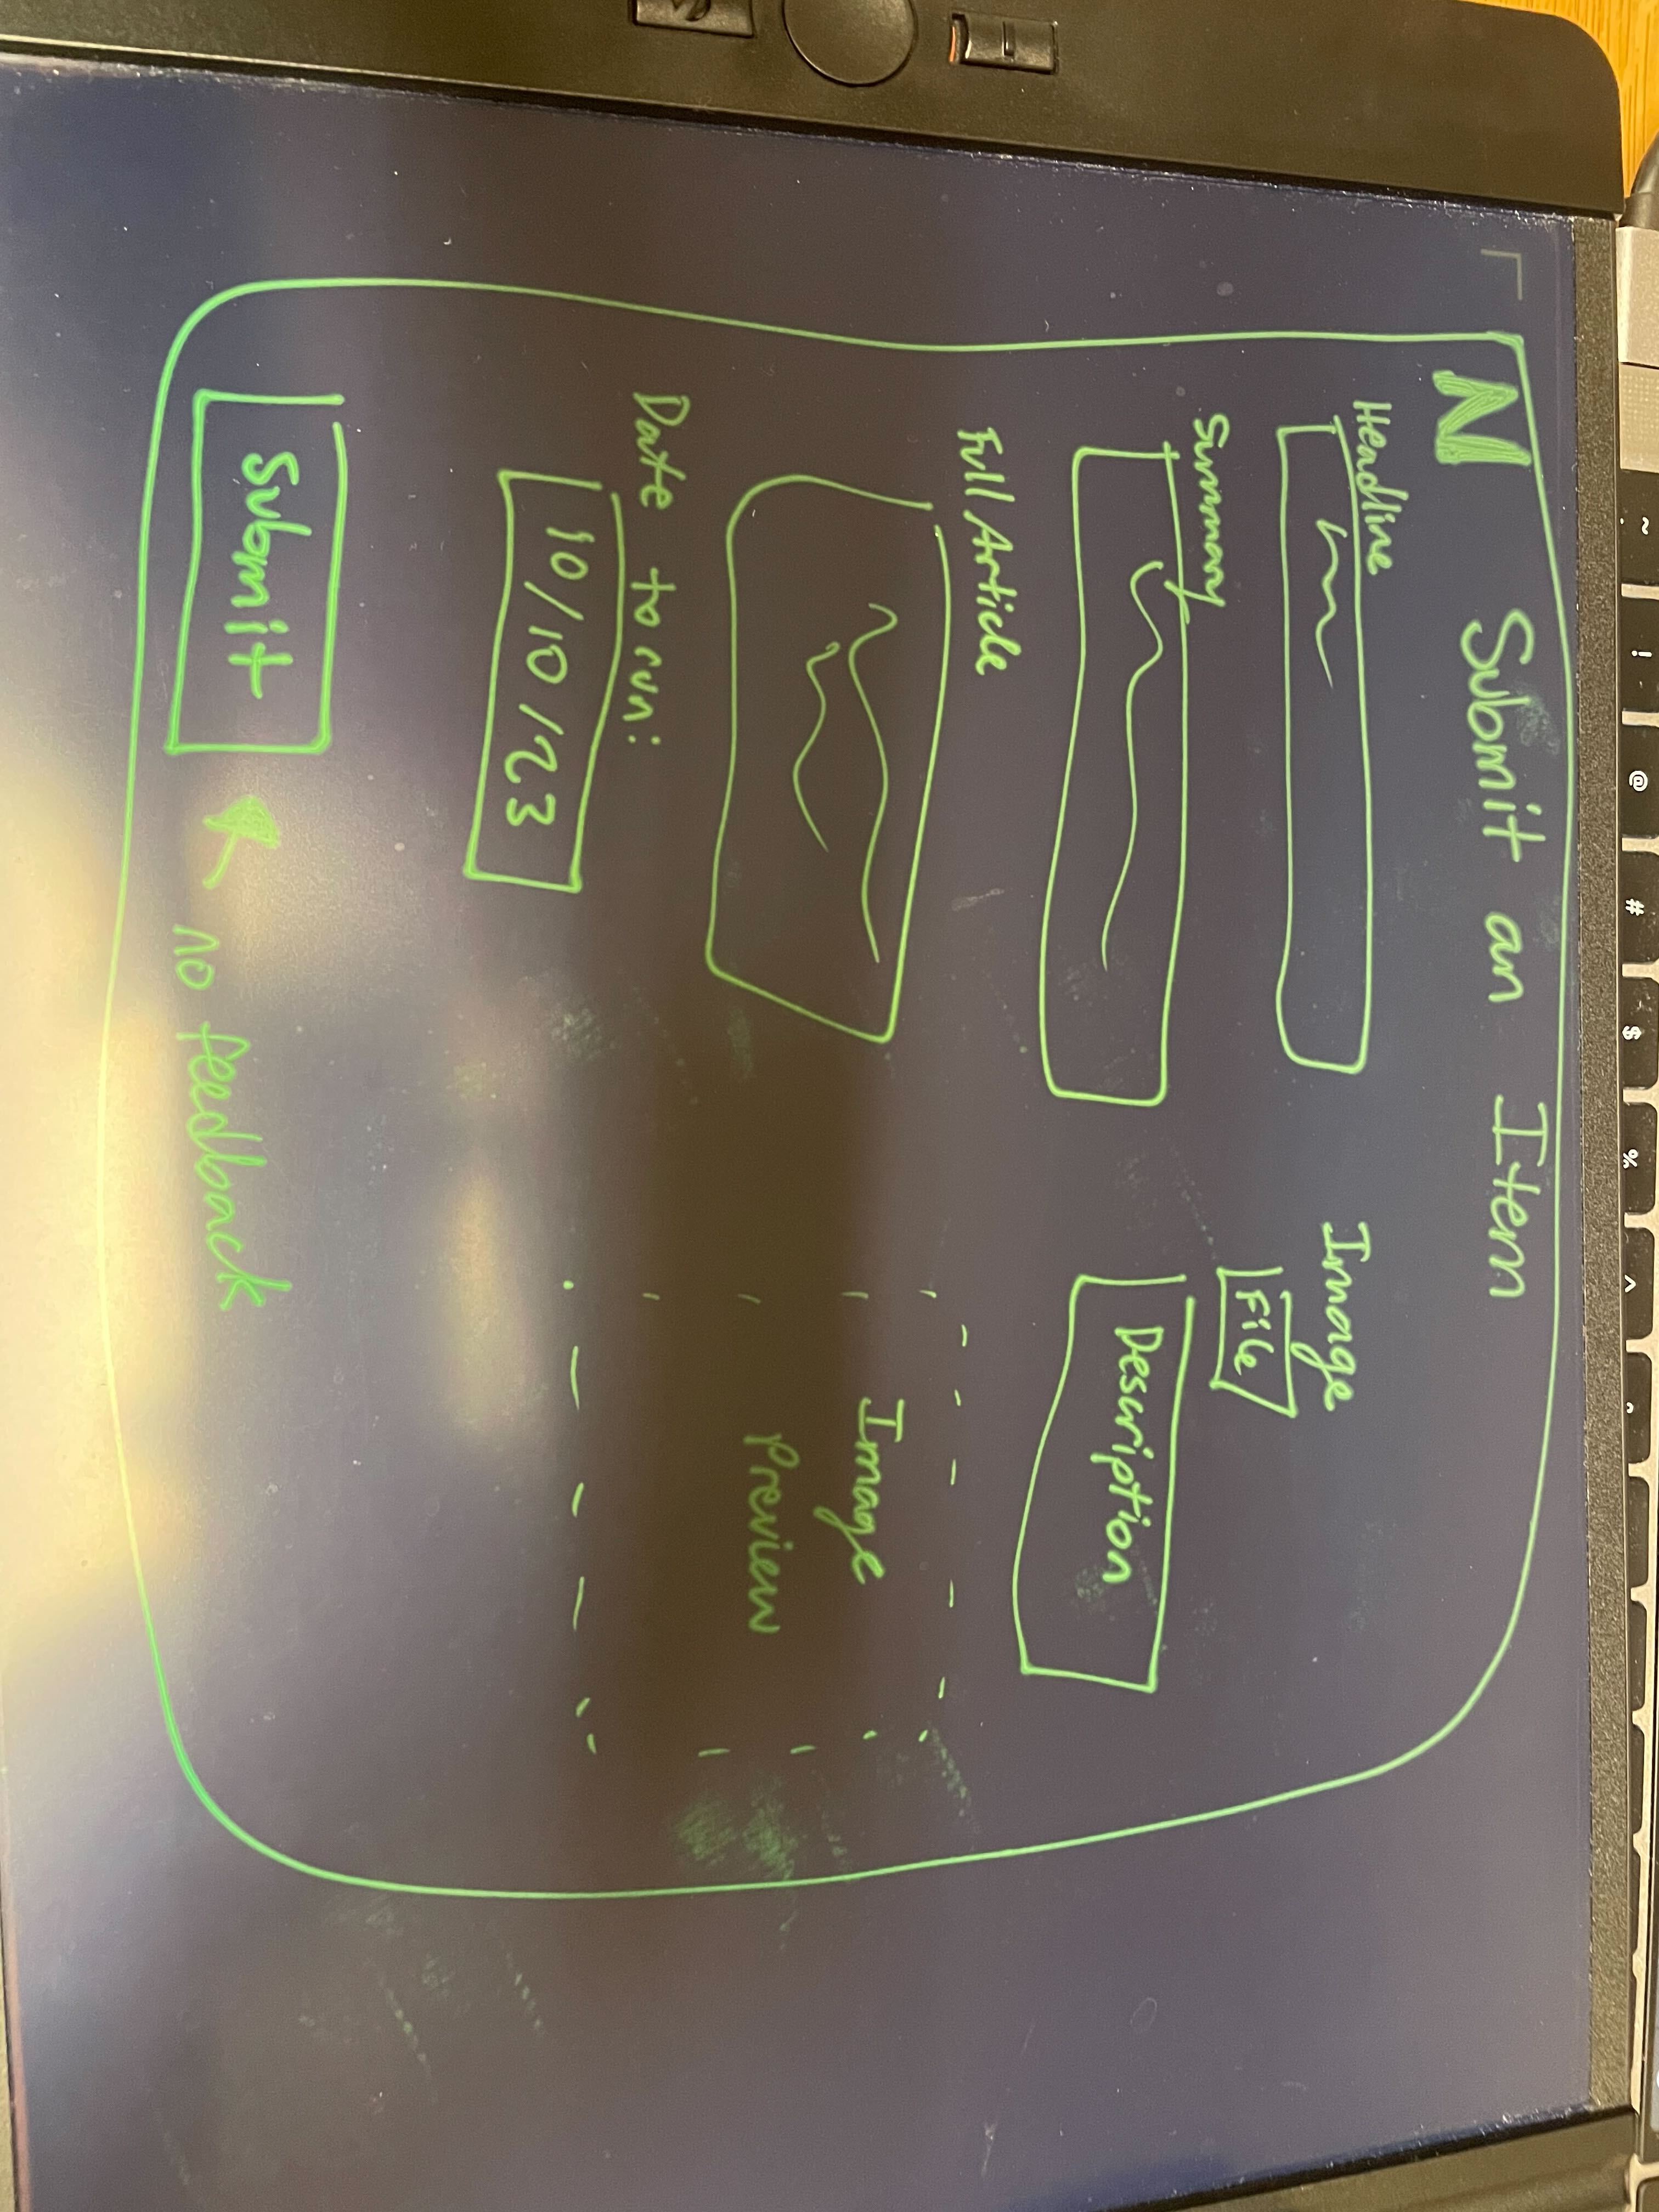 N Submit an Item
Headline
Summary
Full Article
Date to run:
10/10/23
Submit
no feedback
Image
File
Description
Image
Preview
~
!
@
#
$
%
^